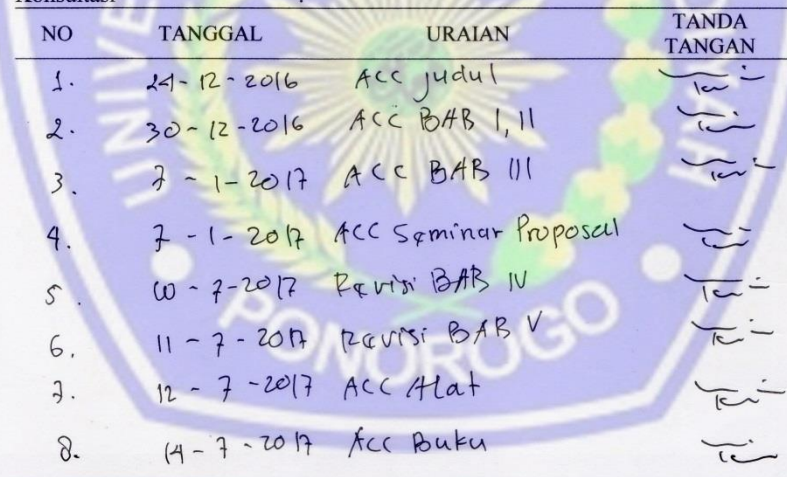 Konsultasi :
NO TANGGAL URAIAN TANDA TANGAN
1. 24-12-2016 ACC judul
2. 30-12-2016 ACC BAB I, II
3. 7-1-2017 ACC BAB III
4. 7-1-2017 ACC Seminar Proposal
5. 10-7-2017 Revisi BAB IV
6. 11-7-2017 Revisi BAB V
7. 12-7-2017 ACC Alat
8. 14-7-2017 Acc Buku
PONOROGO